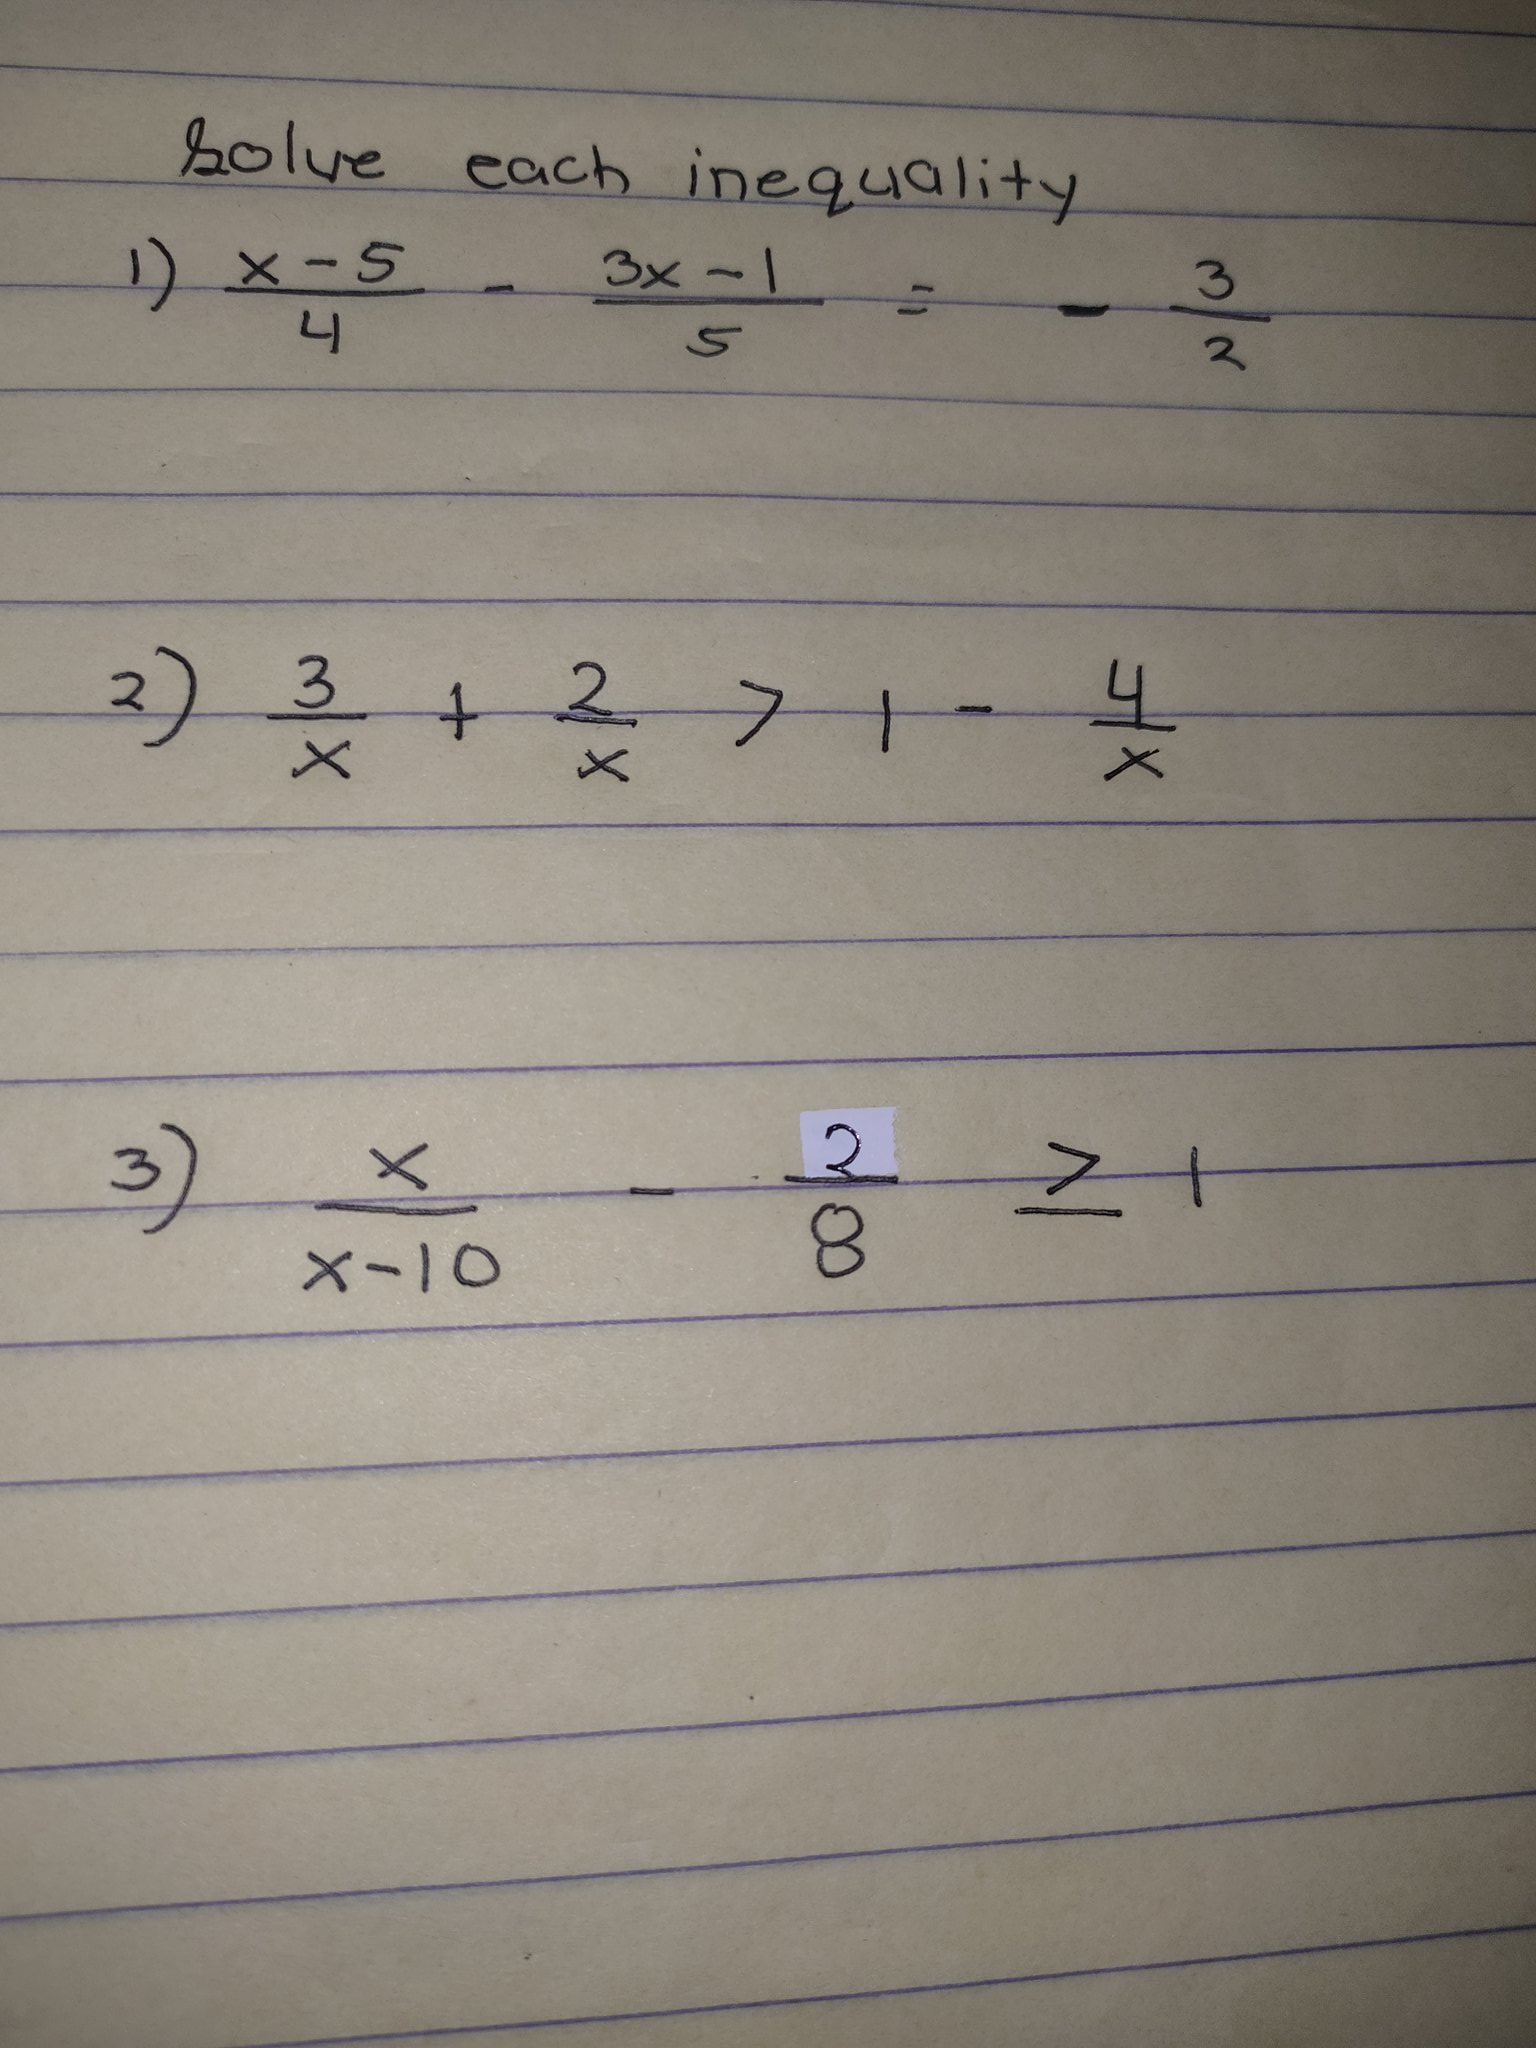 Solve each inequality
1) x-5/4 - 3x-1/5 = - 3/2
2) 3/x + 2/x > 1 - 4/x
3) x/x-10 - 2/8 ≥ 1